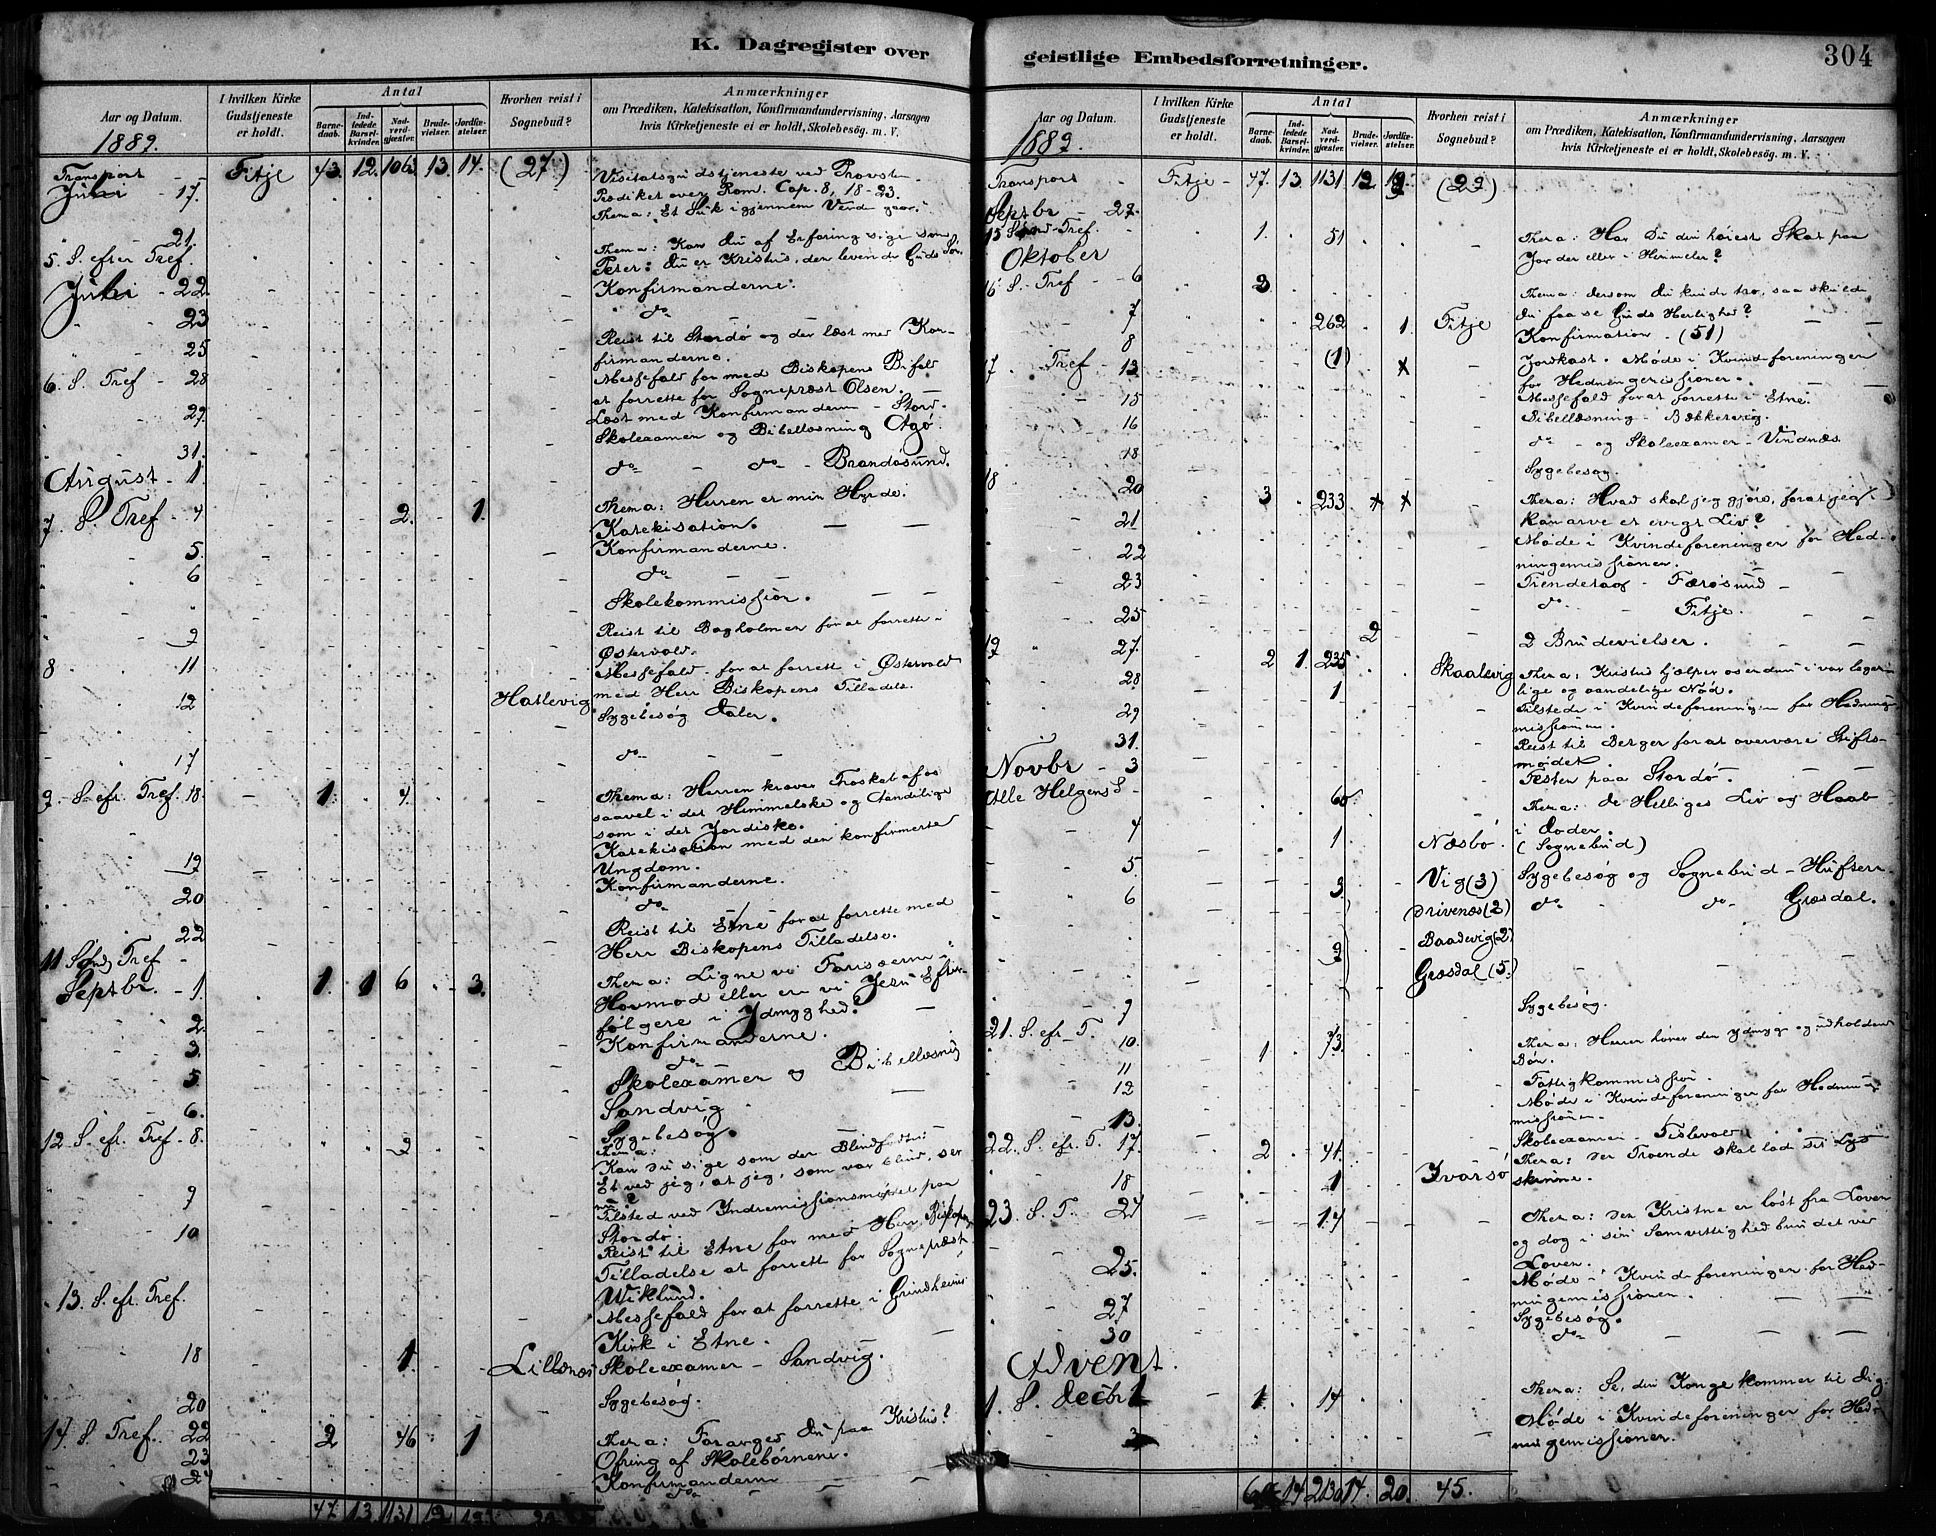 K. Dagregister over
Aar og Datum.
I hvilken Kirke Gudstjeneste er holdt.
Antal
Barne-daab.
Ind-ledede Barsel-kvinder.
Nad-verd-gjæster.
Brude-vielser.
Jordfæ-stelser.
Hvorhen reist i Sognebud?
Anmærkninger
om Prædiken, Katekisation, Konfirmandundervisning, Aarsagen
hvis Kirketjeneste ei er holdt, Skolebesög. m. V.
1889.
Transport Fitje 43. 12. 13. 14. (27)
Juli 17. Visitatsgudstjeneste ved Provsten
Prædiket over Rom. Cap. 8, 18-23.
Thema: Et Suk igjennem Verden gaar.
21.
5. S. efter Tref. Thema: Kan du af Erfaring sige som
Peter: du er Kristus, den levende Guds Søn.
Juli - 22 Konfirmanderne.
23 do
25 Reist til Stordø og der læst med Kon-
firmanderne.
6. S. Tref - 28 Messefald for med Biskopens Bifald
at forrette for Sogneprest Olsen.
29. Læst med Konfirmanderne - Stord.
31. Skolexamen og Bibellæsning Agø.
August - 1. do - do - Brandasund.
7. S. Tref - 4 2. 1. Thema: Herren er min Hyrde.
Katekisation.
5. Konfirmanderne.
6 do
Skolekommission.
9 Reist til Bagholmen for at forrette i
Østervold.
8 11 Messefald for at forrette i Østervold
med Herr Biskopens Tilladelse.
12 Hatlevig Sygebesøg Dalen.
17 do
9. S. efr. Tref. 18. 1. 4. Thema: Herren kræver Troskab af os
saavel i det Himmelske og Aandelige
som i det Jordiske.
Katekisation med den konfirmerte
Ungdom.
19 Konfirmanderne.
20 do
22 Reist til Etne for at forrette med
Herr Biskopens Tilladelse.
11 Sønd Tref -
Septbr. - 1. 1. 1 6 3. Thema: Ligne vi Farisæerne i
Hovmod eller ere vi Jesu Efter-
følgere i Ydmyghed?
2. Konfirmanderne.
3. do
5. Skolexamen og Bibellæsning
Sandvig.
6. Sygebesøg.
12 S. efr. Tref - 8. 2 Thema:
Kan du sige som den Blindfødte:
Et ved jeg, at jeg, som var blind, ser
nu?
9 Tilsted ved Indremissionsmødet paa
Stordø.
10 Reist til Etne for med Herr Biskopens
Tilladelse at forrette for Sogneprest
Wiklund.
13. S. efr. Tref. Messefald for at forrette i Grindheims
Kirk i Etne.
18 1. Lillenæs Skolexamen - Sandvig.
20 Sygebesøg.
14. S Tref. 22 2 46 1 Thema: Forarges du paa Kristus?
23 Ofring af Skolebørnene.
24 Konfirmanderne
do
47. 13. 1131 12
geistlige Embedsforretninger.
304
Aar og Datum.
I hvilken Kirke Gudstjeneste er holdt.
Antal
Barne-daab.
Ind-ledede Barsel-kvinder.
Nad-verd-gjæster.
Brude-vielser.
Jordfæ-stelser.
Hvorhen reist i Sognebud?
Anmærkninger
om Prædiken, Katekisation, Konfirmandundervisning, Aarsagen
hvis Kirketjeneste ei er holdt, Skolebesög. m. V.
1889.
Transport Fitje - 47. 13. 1131 12 (29)
Septbr - 29.
15 Sønd-Tref. 1. 51 Thema: Har du din høiest Skat paa
Jorden eller i Himmelen?
Oktober
16 S. Tref - 6 3. Thema: dersom du kunde tro, saa skulde
du faa se Guds Herlighed?
7 262 1. Fitje Konfirmation (51)
8 (1) Jordkast. Møde i Kvindeforeningen
for Hedningemissionen.
17. Tref - 13 Messefald for at forrette i Etne.
15 Bibellæsning - Bækkervig.
16 do - og Skolexamen - Vindnæs
18 Sygebesøg.
18 20 3 233 Thema: Hvad skal jeg gjøre, for at jeg
kan arve et evigt Liv?
21 Møde i Kvindeforeningen for Hed-
ningemissionen.
22
23 Tiendetag - Færøsund
25 do - Fitje.
2 2 Brudevielser.
19 27. 2 1. 235 Skaalevig Thema: Kristus hjælper os endnu i vor legem-
lige og aandelige Nød.
28 1 Tilstede i Kvindeforeningen for Hedninge-
missionen.
29 Reist til Bergen for at overvære Stifts-
mødet.
31. Festen paa Stordø.
Novbr - 3
Alle Helgens S - 60. Thema: de Helliges Liv og Haab
i Døden.
4 1 Næsbø. (Sognebud)
5. Sygebesøg og Sognebud - Hufserr
6 3 Vig (3)
Drivenæs (2) do do Græsdal.
9 Baadevig (2)
Græsdal (5.)
9 Sygebesøg.
21. S. efr. T. 10. 1 73. Thema: Herren hører den ydmyge og udholdende
Bøn.
11 Fattigkommission.
12 Møde i Kvindeforeningen for Hedninge-
missionen.
13. Skolexamen - Tislevold
22. S. efr. T. 17. 2 41. Thema: den Troende skal lade sit Lys
skinne.
18 1 Ivarsø
23. S. T. 24 14 Thema: den Kristne er løst fra Loven
og dog i sin Samvittighed bundet ved
Loven.
25. Møde i Kvindeforeningen for Hed-
ningemissionen.
27 Sygebesøg.
30 do
Advent.
1. S. Decbr 1 1. 14 Thema: Se, din Konge kommer til dig.
3 Møde i Kvindeforeningen for Hed-
ningemissionen.
60 14 14. 20. 45.